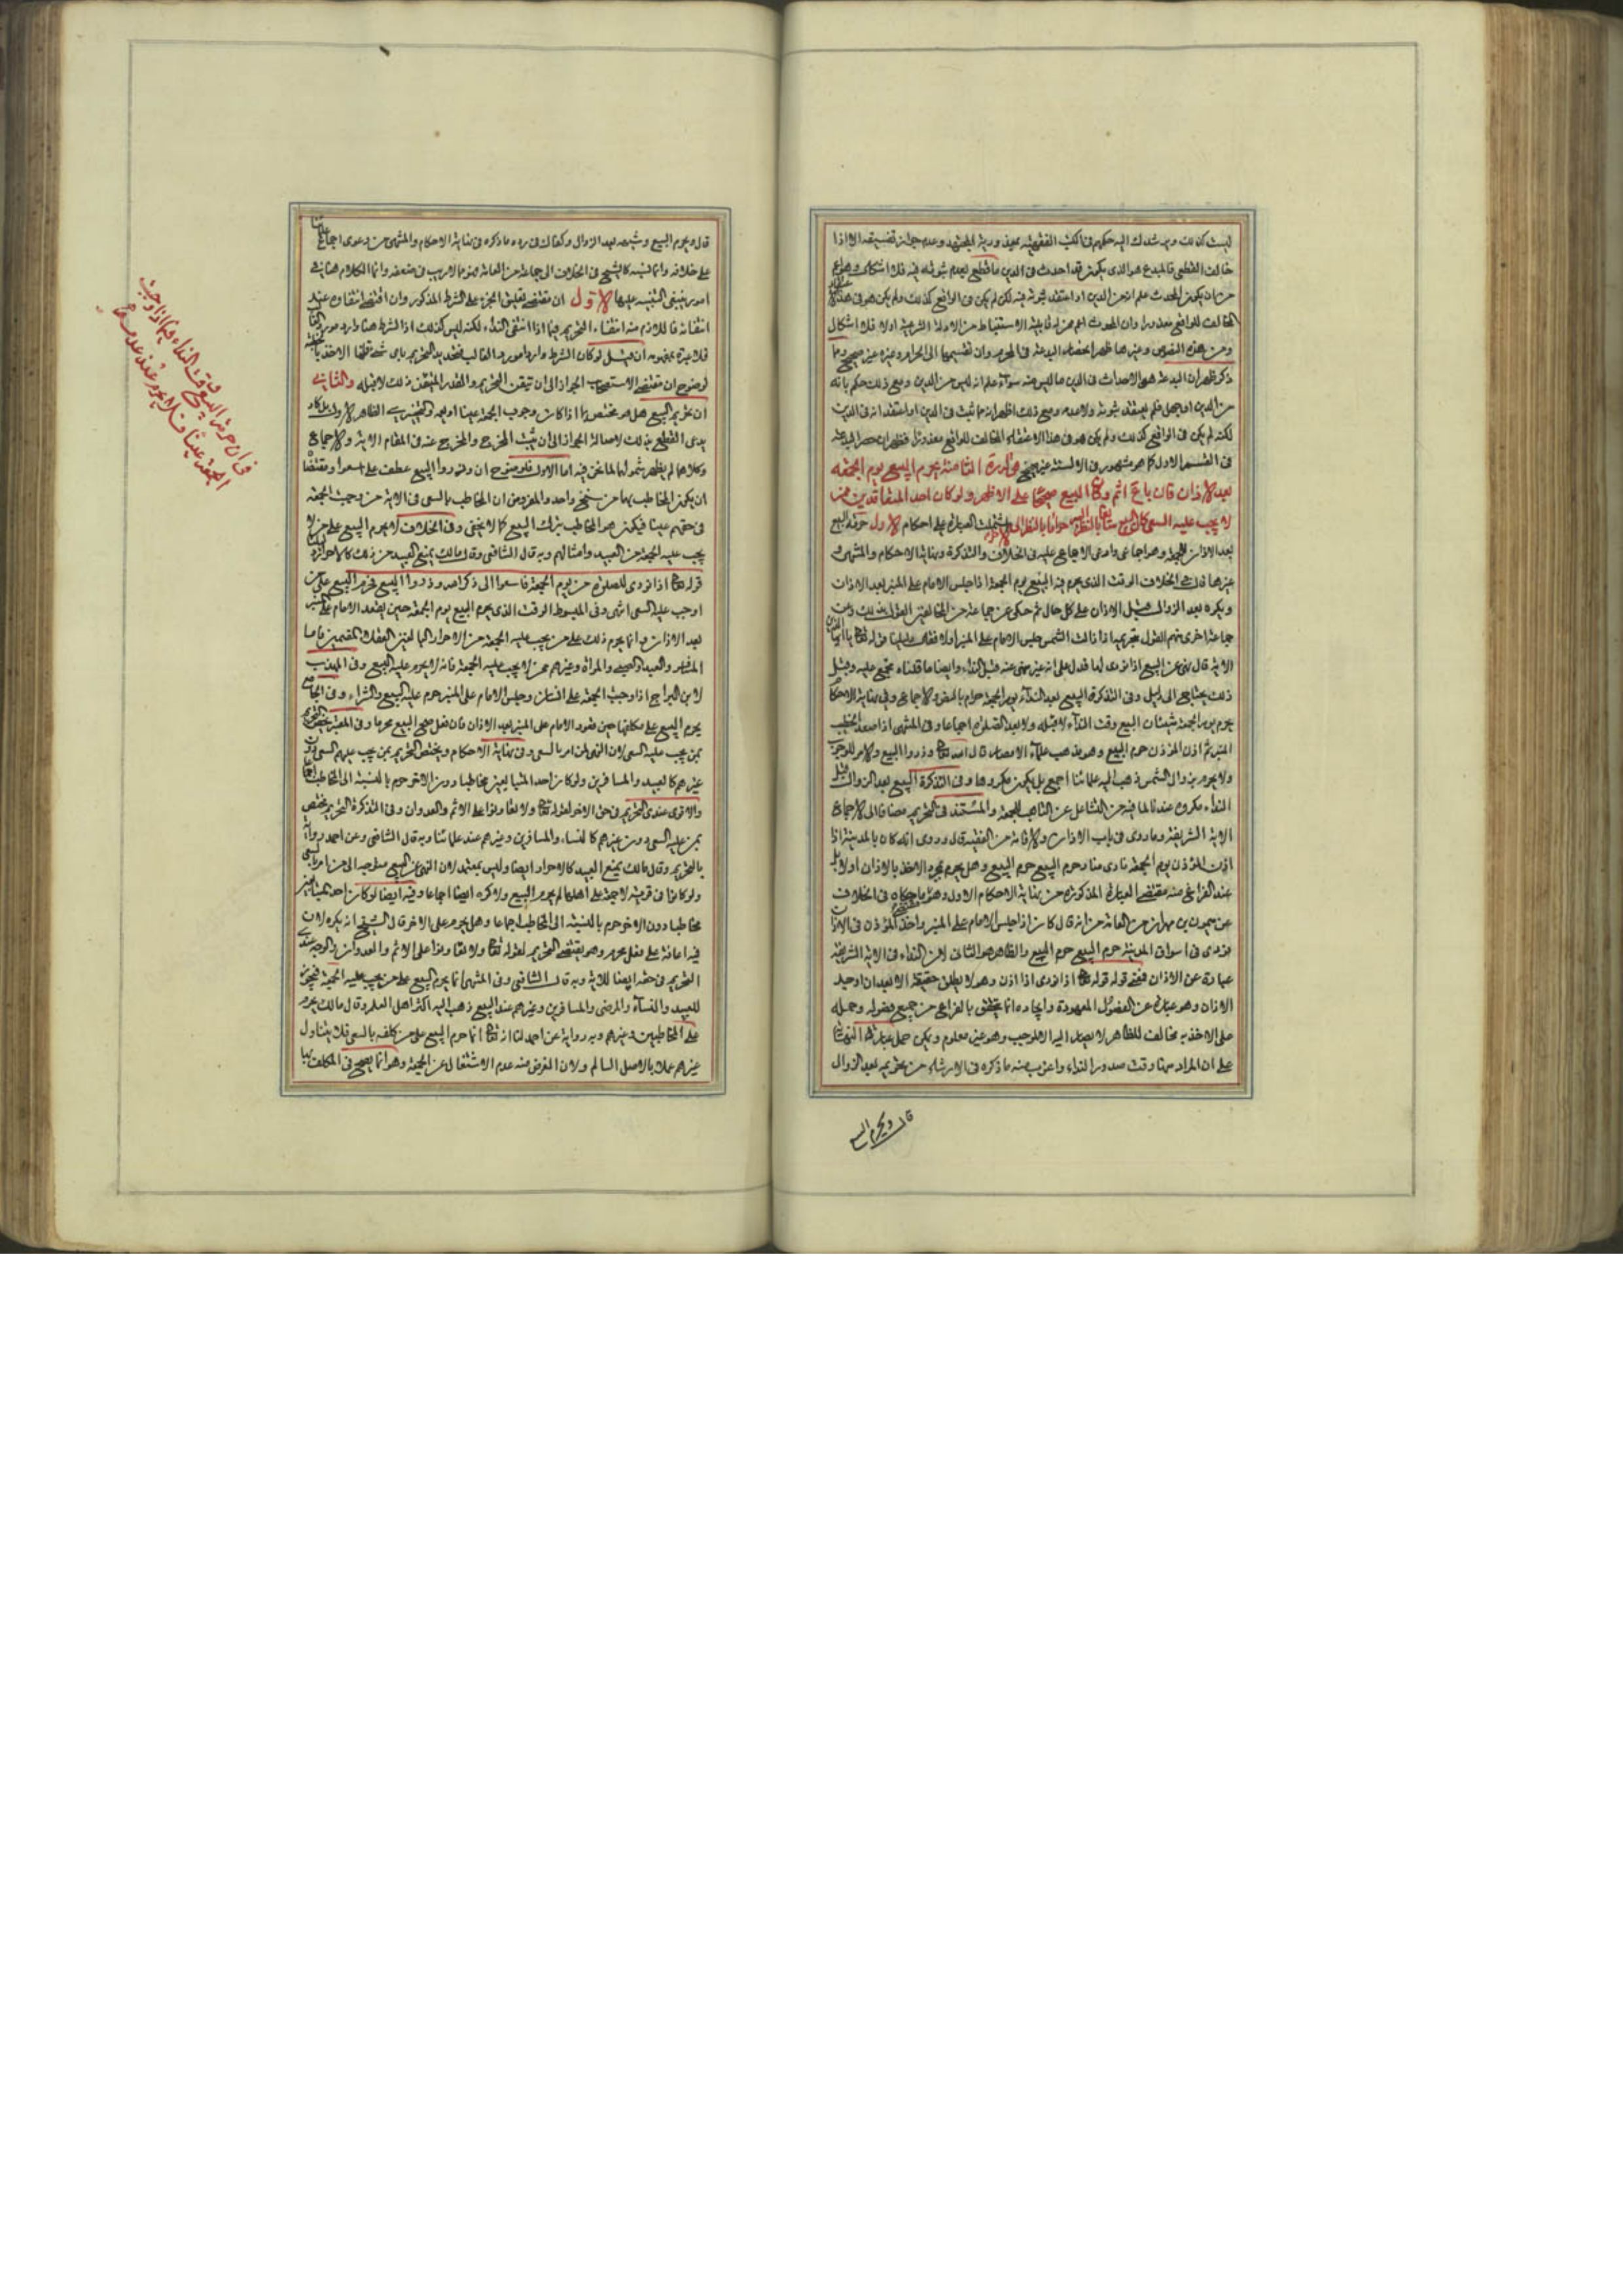 ليست كذلك ويرشدك اليه حكمهم في الكتب الفقهية بمعذورية المجتهد وعدم جواز تفسيقه الا اذا
خالف القطعي فالمبدع هو الذي يكون قد احدث في الدين ما قطع بعدم ثبوته فيه فلا اشكال
من ان يكون المحدث علم انه من الدين او اعتقد ثبوته منه لكن لم يكن في الواقع كذلك ولم يكن هو في هذا
المخالف للواقع معذورا وان المحدث اعم ممن له قابلية الاستنباط من الادلة الشرعية اولا فلا اشكال
ومن هذه النصوص وغيرها ظهر انحصار البدعة في المحرم وان تقسيمها الى الحرام وغيره غير صحيح وما
ذكر ظهر ان البدعة هو الاحداث في الدين ما ليس منه سواء علم انه ليس من الدين ومع ذلك حكم بانه
من الدين او جهل فلم يعتقد ثبوته ولا عدمه ومع ذلك اظهر انه مما ثبت في الدين او اعتقد انه في الدين
لكنه لم يكن في الواقع كذلك ولم يكن هو في هذا الاعتقاد المخالف للواقع معذورا فظهر ان حصر البدعة
في القسم الاول كما هو مشهور في الالسنة غير صحيح قوله الثامنة يحرم البيع يوم الجمعة
بعد الاذان فان باع اثم وكان البيع صحيحا على الاظهر ولو كان احد المتعاقدين ممن
لا يجب عليه السعي كان البيع سائغا بالنظر اليه حراما بالنظر الى الاخر اشتملت العبارة على احكام الاول حرمة البيع
بعد الاذان للجمعة وهو اجماعي وادعى الاجماع عليه في الخلاف والتذكرة ونهاية الاحكام والمنتهى و
غيرها قال في الخلاف الوقت الذي يحرم فيه البيع يوم الجمعة اذا جلس الامام على المنبر بعد الاذان
ويكره بعد الزوال قبل الاذان على كل حال ثم حكى عن جماعة من المخالفين القول بذلك وعن
جماعة اخرى منهم القول بتحريمه اذا زالت الشمس جلس الامام على المنبر اولا فقال دليلنا قوله تعالى يا ايها الذين
الاية قال نهى عن البيع اذا نودي لها فدل على انه غير منهي عنه قبل النداء وايضا ما قلناه مجمع عليه وقبل
ذلك يحتاج الى دليل وفي التذكرة البيع بعد النداء يوم الجمعة حرام بالنص والاجماع وفي نهاية الاحكام
يحرم يوم الجمعة شيئان البيع وقت النداء لا قبله ولا بعد الصلوة اجماعا وفي المنتهى اذا صعد الخطيب
المنبر ثم اذن المؤذن حرم البيع وهو مذهب علماء الامصار قال الله تعالى وذروا البيع والامر للوجوب
ولا يحرم بزوال الشمس ذهب اليه علمائنا اجمع بل يكون مكروها وفي التذكرة البيع بعد الزوال قبل
النداء مكروه عندنا لما فيه من التشاغل عن التاهب للجمعة والمستند في التحريم مضافا الى الاجماع
الاية الشريفة وما روي في باب الاذان والاقامة من الفقيه قال وروي انه كان بالمدينة اذا
اذن المؤذن يوم الجمعة نادى مناد حرم البيع حرم البيع وهل يحرم بمجرد الاخذ بالاذان او لا بد
عند الفراغ منه مقتضى العبارة المذكورة من نهاية الاحكام الاول وهو ما حكاه في الخلاف
عن ميمون بن مهران من العامة من انه قال كان اذا جلس الامام على المنبر واخذ المؤذن في الاذان
نودي في اسواق المدينة حرم البيع حرم البيع والظاهر هو الثاني لان النداء في الاية الشريفة
عبارة عن الاذان فمعنى قوله تعالى اذا نودي اذا اذن وهو لا يطلق حقيقة الا بعد ان اوجد
الاذان وهو عبارة عن الفصول المعهودة وايجاده انما يتحقق بالفراغ من جميع فصوله وحمله
على الاخذ به مخالف للظاهر لا يصار اليه الا لموجب وهو غير معلوم ويمكن حمل عبارة النهاية
على ان المراد منها وقت صدور النداء واغرب منه ما ذكره في الارشاد من تحريمه بعد الزوال
قال ويحرم البيع
قال ويحرم البيع وشبهه بعد الزوال وكفاك في رده ما ذكره في نهاية الاحكام والمنتهى من دعوى اجماع علمائنا
على خلافه وانما نسبه كالشيخ في الخلاف الى جماعة من العامة فهو مما لا ريب في ضعفه وانما الكلام هنا في
امور ينبغي التنبيه عليها الاول ان مقتضى تعليق الجزاء على الشرط المذكور وان اقتضى انتفاءه عند
انتفائه فاللازم منه انتفاء التحريم فيما اذا انتفى النداء لكنه ليس كذلك اذ الشرط هنا وارد مورد الغالب
فلا عبرة بمفهومه ان قيل لو كان الشرط واردا مورد الغالب فتحديد التحريم باي شيء قلنا الاخذ
لوضوح ان مقتضى الاستصحاب الجواز الى ان تيقن التحريم والمقدر المتيقن ذلك لا قبله والثاني
ان تحريم البيع هل هو مختص بما اذا كان وجوب الجمعة عينا او يعمه والتخيير الظاهر الاول بل كاد
يدعى القطع بذلك لاصالة الجواز الى ان يثبت المخرج والمخرج عنه في المقام الاية والاجماع
وكلاهما لم يظهر شمولهما لما نحن فيه اما الاول فلوضوح ان وذروا البيع عطف على فاسعوا ومقتضاه
ان يكون المخاطب بهما من سنخ واحد والمفروض ان المخاطب بالسعي في الاية من وجبت الجمعة
في حقهم عينا فيكون هو المخاطب بترك البيع كما لا يخفى وفي الخلاف لا يحرم البيع على من لا
يجب عليه الجمعة من العبيد وامثالهم وبه قال الشافعي وقال مالك يمنع العبيد من ذلك كالاحرار
قوله تعالى اذا نودي للصلوة من يوم الجمعة فاسعوا الى ذكر الله وذروا البيع فحرم البيع على من
اوجب عليه السعي انتهى وفي المبسوط الوقت الذي يحرم البيع يوم الجمعة حين يقعد الامام على المنبر
بعد الاذان وانما يحرم ذلك على من يجب عليه الجمعة من الاحرار البالغين العقلاء المقيمين فاما
المسافر والعبد والصبي والمراة وغيرهم ممن لا يجب عليه الجمعة فانه لا يحرم عليه البيع وفي المهذب
لابن البراج اذا وجبت الجمعة على انسان وجلس الامام على المنبر حرم عليه البيع والشراء وفي الجامع
يحرم البيع على مكلفها حين قعود الامام على المنبر بعد الاذان فان فعل صح البيع محرما وفي المعتبر يختص التحريم
بمن يجب عليه السعي لان النهي لمن امر بالسعي وفي نهاية الاحكام ويختص التحريم بمن يجب عليهم السعي دون
غيرهم كالعبيد والمسافرين ولو كان احد المتبايعين مخاطبا دون الاخر حرم بالنسبة الى المخاطب اجماعا
والاقوى عندي التحريم في حق الاخر لقوله تعالى ولا تعاونوا على الاثم والعدوان وفي التذكرة التحريم يختص
بمن عليه السعي دون غيرهم كالنساء والمسافرين وغيرهم عند علمائنا وبه قال الشافعي وعن احمد رواية
بالتحريم وقال مالك يمنع العبيد كالاحرار ايضا وليس بمعتمد لان النهي عن البيع متوجه الى من امر بالسعي
ولو كانوا في قرية لا جمعة على اهلها لم يحرم البيع ولا كره ايضا اجماعا وفيه ايضا لو كان احد المتبايعين
مخاطبا دون الاخر حرم بالنسبة الى المخاطب اجماعا وهل يحرم على الاخر قال الشيخ انه يكره لان
فيه اعانة على فعل محرم وهو يقتضي التحريم لقوله تعالى ولا تعاونوا على الاثم والعدوان والوجه عندي
التحريم في حقه ايضا للاية وبه قال الشافعي وفي المنتهى انما يحرم البيع على من يجب عليه الجمعة فيجوز
للعبيد والنساء والمرضى والمسافرين وغيرهم عند البيع ذهب اليه اكثر اهل العلم وقال مالك يحرم
على المخاطبين وغيرهم وبه رواية عن احمد لنا انه تعالى انما حرم البيع على من كلفه بالسعي فلا يتناول
غيرهم عملا بالاصل السالم ولان الغرض منه عدم الاشتغال عن الجمعة وهو انما يصح في المكلف بها
في ان حرمة البيع وقت النداء فيما اذا وجبت
الجمعة عينا فلا يحرم عند عدمه